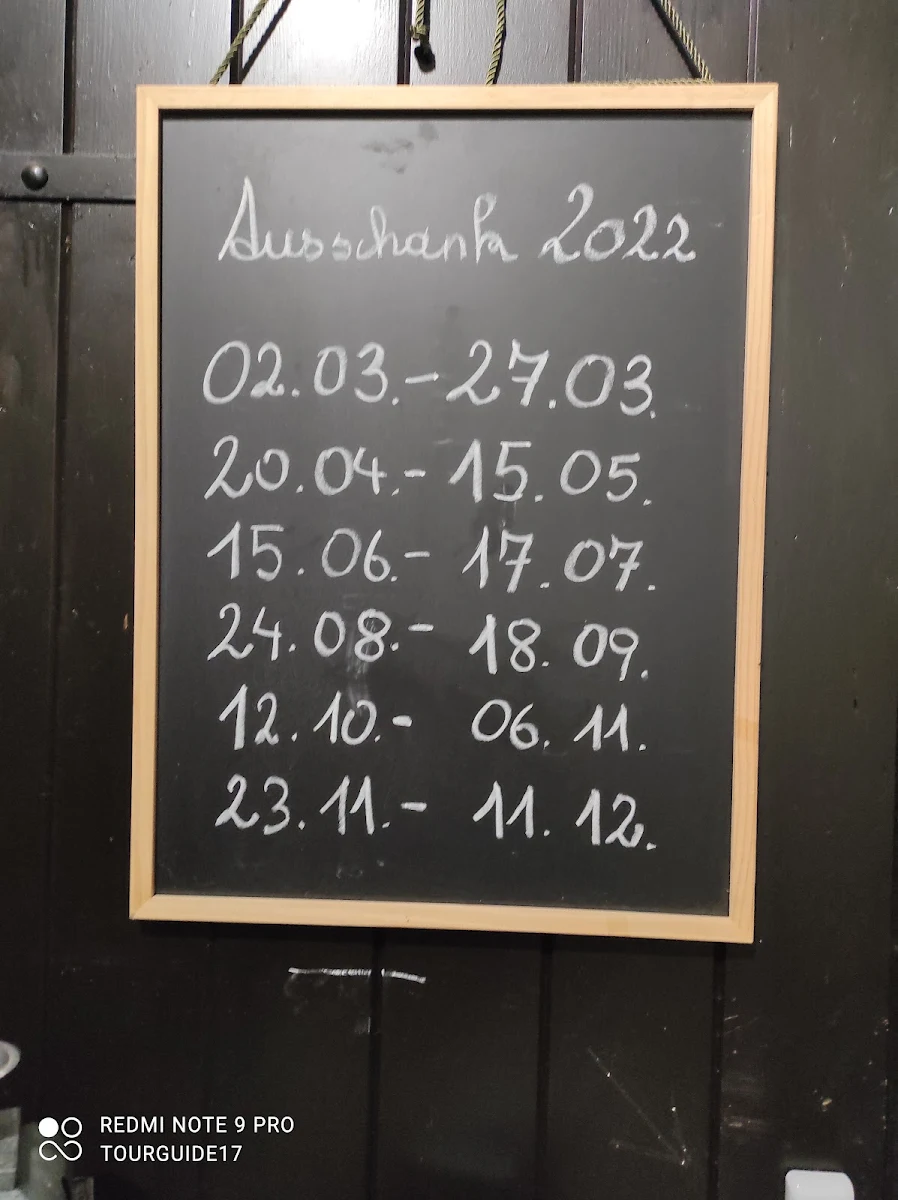 Ausschank 2022
02.03.- 27.03.
20.04.- 15.05.
15.06.- 17.07.
24.08.- 18.09.
12.10.- 06.11.
23.11.- 11.12.
REDMI NOTE 9 PRO
TOURGUIDE17